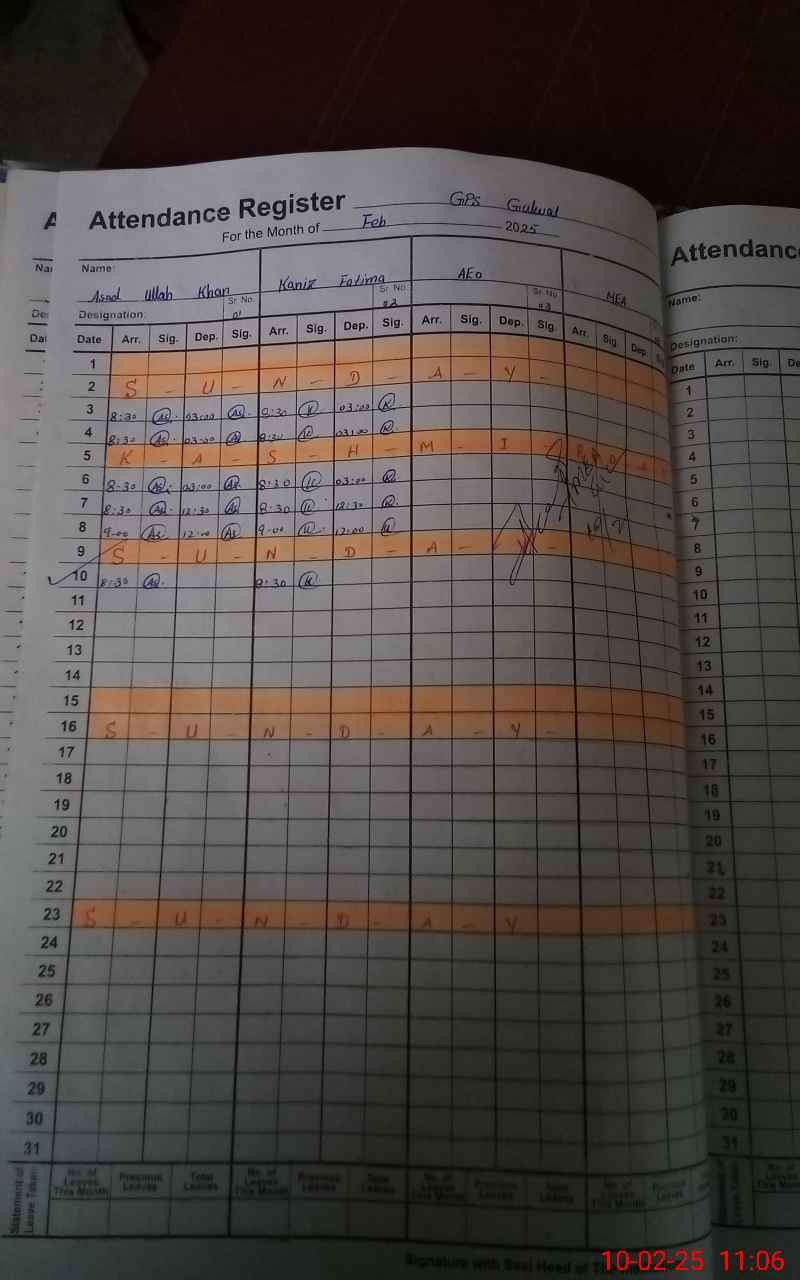 Attendance Register GPS Gulwal
For the Month of Feb 2025
Name: Asad Ullah Khan Kaniz Fatima AEO MEA
Designation: Sr. No. 01 Sr. No. 02 Sr. No. 03
Date Arr. Sig. Dep. Sig. Arr. Sig. Dep. Sig. Arr. Sig. Dep. Sig. Arr. Sig. Dep.
1
2 S - U - N - D - A - Y -
3 8:30 As 03:00 As 8:30 K 03:00 K
4 8:30 As 03:00 As 8:30 K 03:00 K
5 K - A - S - H - M - I -
6 8:30 As 03:00 As 8:30 K 03:00 K
7 8:30 As 12:30 As 8:30 K 12:30 K
8 9:00 As 12:00 As 9:00 K 12:00 K
9 S - U - N - D - A - Y
10 8:30 As 8:30 K
11
12
13
14
15
16 S - U - N - D - A - Y -
17
18
19
20
21
22
23 S - U - N - D - A - Y
24
25
26
27
28
29
30
31
Statement of Leave Taken
No. of Leaves This Month Previous Leaves Total Leaves No. of Leaves This Month Previous Leaves Total Leaves No. of Leaves This Month Previous Leaves Total Leaves No. of Leaves This Month Previous Leaves
Signature with Seal Head of
Attendanc
Name:
Designation:
Date Arr. Sig. De
1
2
3
4
5
6
7
8
9
10
11
12
13
14
15
16
17
18
19
20
21
22
23
24
25
26
27
28
29
30
31
No. of Leaves This Month
10-02-25 11:06